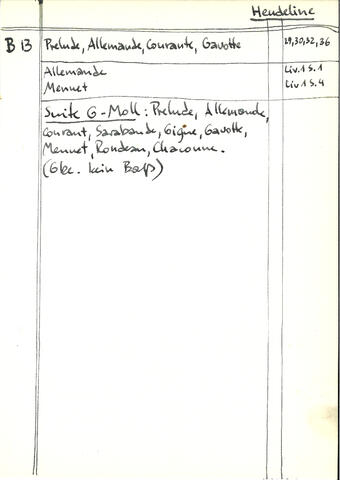 Heudeline
B 13 Prelude, Allemande, Courante, Gavotte 29,30,32,36
Allemande Liv. 1 S. 1
Menuet Liv. 1 S. 4
Suite G-Moll: Prelude, Allemande,
Courant, Sarabande, Gigue, Gavotte,
Menuet, Rondeau, Chaconne.
kein Baß)